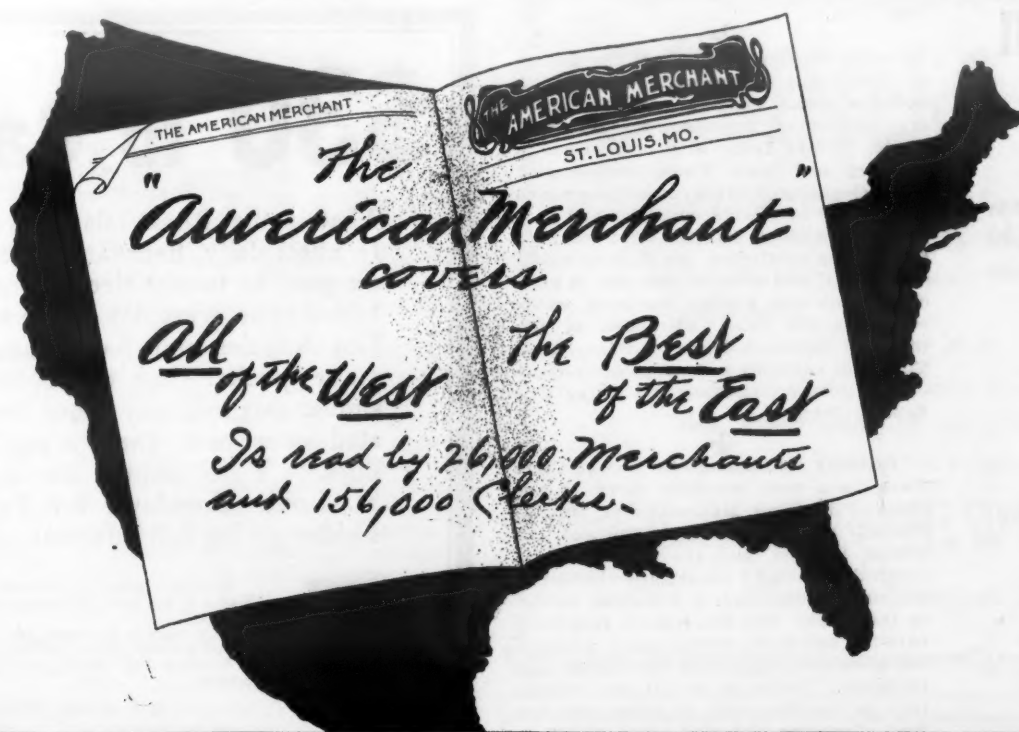 THE AMERICAN MERCHANT
THE AMERICAN MERCHANT
ST. LOUIS, MO.
The
"American Merchant"
covers
All
of the West
The Best
of the East
Is read by 26,000 Merchants
and 156,000 Clerks.